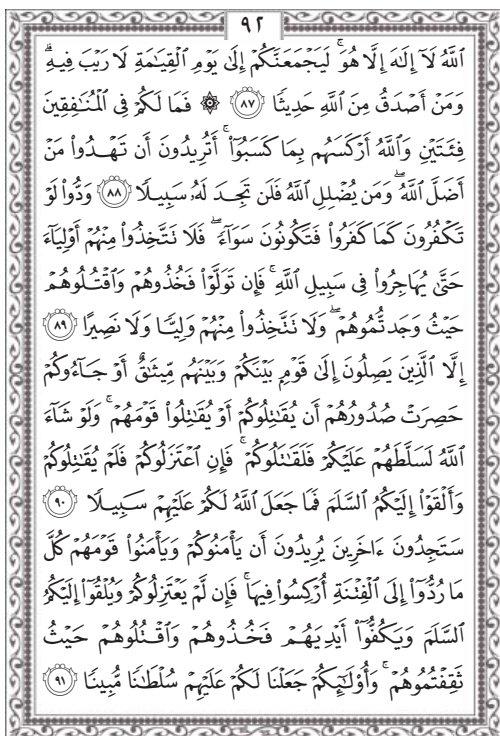 ٩٢
ٱللَّهُ لَآ إِلَٰهَ إِلَّا هُوَۚ لَيَجْمَعَنَّكُمْ إِلَىٰ يَوْمِ ٱلْقِيَٰمَةِ لَا رَيْبَ فِيهِۗ
وَمَنْ أَصْدَقُ مِنَ ٱللَّهِ حَدِيثًا ٨٧ ۞ فَمَا لَكُمْ فِى ٱلْمُنَٰفِقِينَ
فِئَتَيْنِ وَٱللَّهُ أَرْكَسَهُم بِمَا كَسَبُوٓا۟ۚ أَتُرِيدُونَ أَن تَهْدُوا۟ مَنْ
أَضَلَّ ٱللَّهُۖ وَمَن يُضْلِلِ ٱللَّهُ فَلَن تَجِدَ لَهُۥ سَبِيلًا ٨٨ وَدُّوا۟ لَوْ
تَكْفُرُونَ كَمَا كَفَرُوا۟ فَتَكُونُونَ سَوَآءًۖ فَلَا تَتَّخِذُوا۟ مِنْهُمْ أَوْلِيَآءَ
حَتَّىٰ يُهَاجِرُوا۟ فِى سَبِيلِ ٱللَّهِۚ فَإِن تَوَلَّوْا۟ فَخُذُوهُمْ وَٱقْتُلُوهُمْ
حَيْثُ وَجَدتُّمُوهُمْۖ وَلَا تَتَّخِذُوا۟ مِنْهُمْ وَلِيًّا وَلَا نَصِيرًا ٨٩
إِلَّا ٱلَّذِينَ يَصِلُونَ إِلَىٰ قَوْمٍۭ بَيْنَكُمْ وَبَيْنَهُم مِّيثَٰقٌ أَوْ جَآءُوكُمْ
حَصِرَتْ صُدُورُهُمْ أَن يُقَٰتِلُوكُمْ أَوْ يُقَٰتِلُوا۟ قَوْمَهُمْۚ وَلَوْ شَآءَ
ٱللَّهُ لَسَلَّطَهُمْ عَلَيْكُمْ فَلَقَٰتَلُوكُمْۚ فَإِنِ ٱعْتَزَلُوكُمْ فَلَمْ يُقَٰتِلُوكُمْ
وَأَلْقَوْا۟ إِلَيْكُمُ ٱلسَّلَمَ فَمَا جَعَلَ ٱللَّهُ لَكُمْ عَلَيْهِمْ سَبِيلًا ٩٠
سَتَجِدُونَ ءَاخَرِينَ يُرِيدُونَ أَن يَأْمَنُوكُمْ وَيَأْمَنُوا۟ قَوْمَهُمْ كُلَّ
مَا رُدُّوٓا۟ إِلَى ٱلْفِتْنَةِ أُرْكِسُوا۟ فِيهَاۚ فَإِن لَّمْ يَعْتَزِلُوكُمْ وَيُلْقُوٓا۟ إِلَيْكُمُ
ٱلسَّلَمَ وَيَكُفُّوٓا۟ أَيْدِيَهُمْ فَخُذُوهُمْ وَٱقْتُلُوهُمْ حَيْثُ
ثَقِفْتُمُوهُمْۚ وَأُو۟لَٰٓئِكُمْ جَعَلْنَا لَكُمْ عَلَيْهِمْ سُلْطَٰنًا مُّبِينًا ٩١